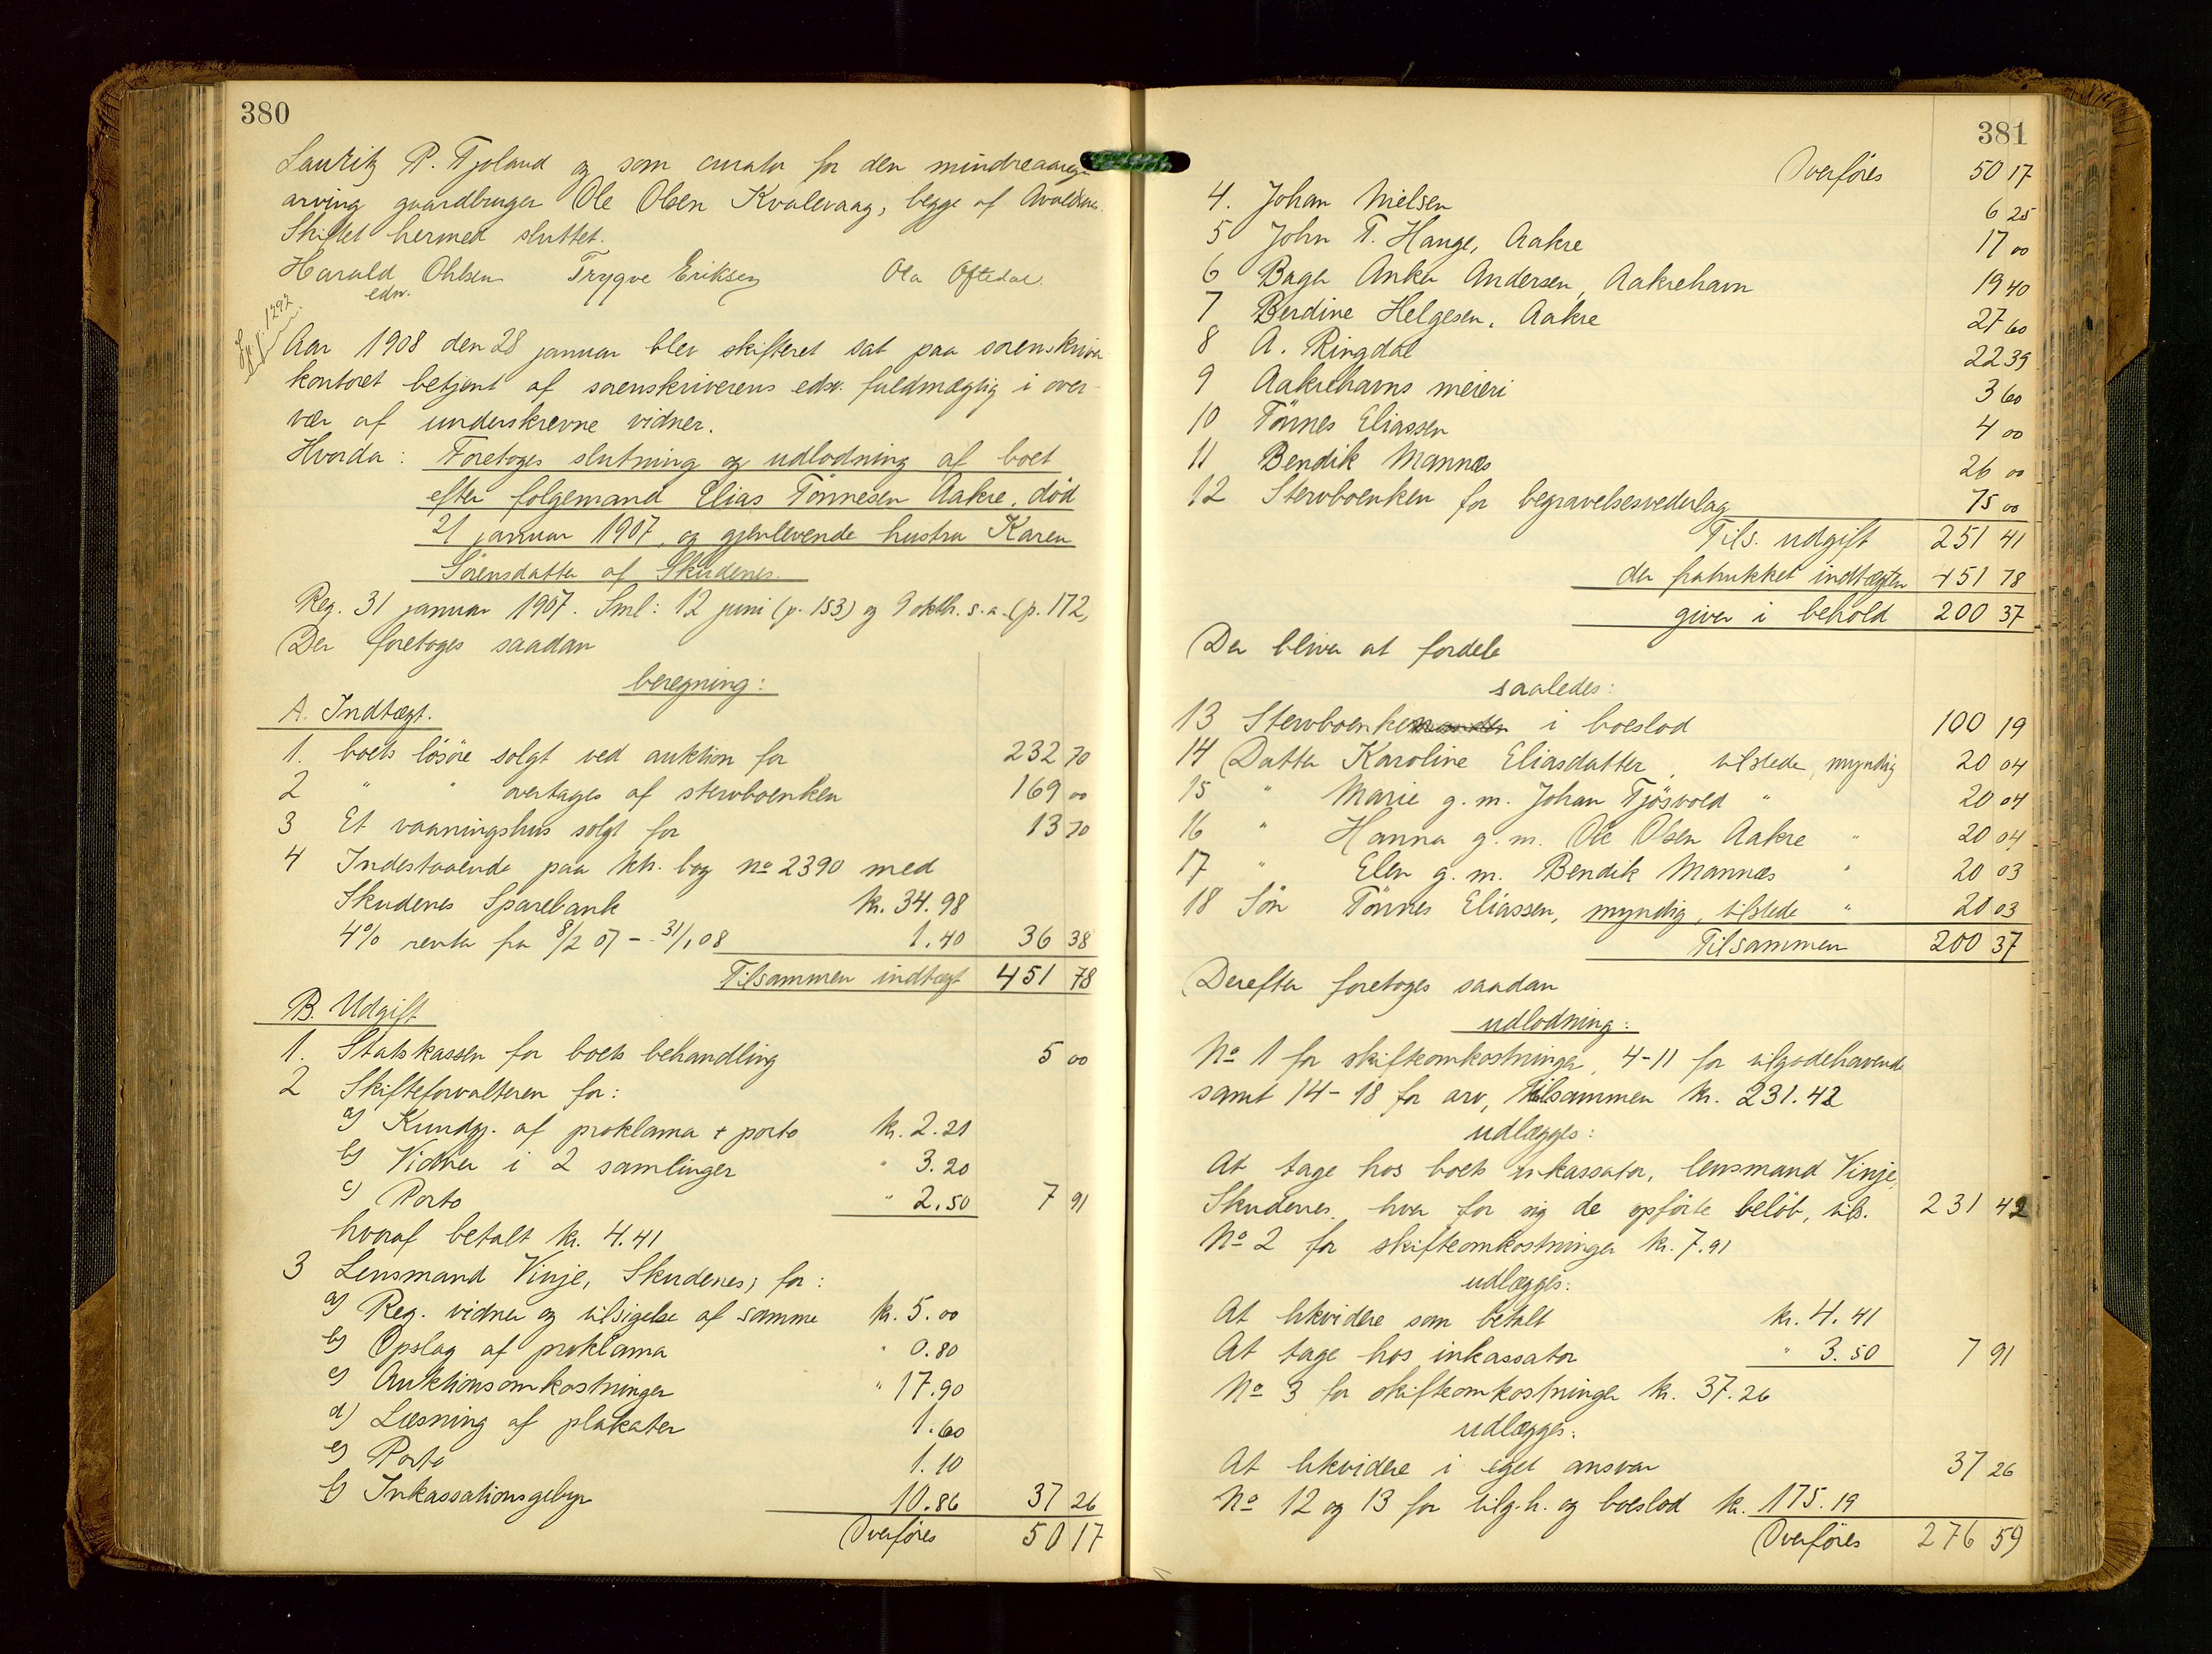 380
Lauritz P. Tjoland og som curator for den mindreaarige
arving gaardbruger Ole Olsen Kvalevaag, begge af Avaldsnes.
Skiftet hermed sluttet.
Harald Ohlsen Trygve Eriksen Ola Oftedal.
edsv.
Aar 1908 den 28 januar blev skifteret sat paa sorenskriver
kontoret betjent af sorenskriverens edsv. fuldmægtig i over-
vær af underskrevne vidner.
Hvorda: Foretoges slutning og udlodning af boet
efter følgemand Elias Tönnesen Aakre, død
21 januar 1907, og gjenlevende hustru Karen
Sörensdatter af Skudenes.
Reg. 31 januar 1907. Sml: 12 juni (p. 153) og 9 oktb. s.a. (p. 172,
Der foretoges saadan
beregning:
A. Indtægt.
1. boets lösöre solgt ved auktion for 232 70
2 " " overtages af stervboenken 169 00
3 Et vaaningshus solgt for 13 70
4 Indestaaende paa ktr. bog No 2390 med
Skudenes Sparebank kr. 34.98
4% renter fra 8/2 07 - 31/1 08 1.40 36 38
Tilsammen indtægt 451 78
B. Udgift
1. Statskassen for boets behandling 5 00
2 Skifteforvalteren for:
a) Kundgj. af proklama + porto kr. 2.21
b) Vidner i 2 samlinger " 3.20
c) Porto " 2.50 7 91
hvoraf betalt kr. 4.41
3 Lensmand Vinje, Skudenes, for:
a) Reg. vidner og tilsigelse af samme kr. 5.00
b) Opslag af proklama " 0.80
c) Auktionsomkostninger " 17.90
d) Læsning af plakater 1.60
e) Porto 1.10
f) Inkassationsgebyr 10.86 37 26
Overføres 50 17
381
Overføres 50 17
4. Johan Nielsen 6 25
5 John T. Hauge, Aakre 17 00
6 Bager Anker Andersen, Aakrehavn 19 40
7 Berdine Helgesen, Aakre 27 60
8 A. Ringdal 22 39
9 Aakrehavns meieri 3 60
10 Tönnes Eliassen 4 00
11 Bendik Mannes 26 00
12 Stervboenken for begravelsesvederlag 75 00
Tils. udgift 251 41
der fratrukket indtægten 451 78
giver i behold 200 37
Der bliver at fordele
saaledes:
13 Stervboenken i boeslod 100 19
14 Datter Karoline Eliasdatter, tilstede, myndig 20 04
15 " Marie g.m. Johan Tjösvold " 20 04
16 " Hanna g.m. Ole Olsen Aakre " 20 04
17 " Elen g.m. Bendik Mannes " 20 03
18 Sön Tönnes Eliassen, myndig, tilstede " 20 03
Tilsammen 200 37
Derefter foretoges saadan
udlodning:
No 1 for skifteomkostninger, 4-11 for tilgodehavende
samt 14-18 for arv, tilsammen kr. 231.42
udlægges:
At tage hos boets inkassator, lensmand Vinje,
Skudenes, hver for sig de opförte belöb, tils. 231 42
No 2 for skifteomkostninger kr. 7.91
udlægges:
At likvidere som betalt kr. 4.41
At tage hos inkassator " 3.50 7 91
No 3 for skifteomkostninger kr. 37.26
udlægges:
At likvidere i eget ansvar 37 26
No 12 og 13 for tilg.h. og boeslod kr. 175.19
Overføres 276 59